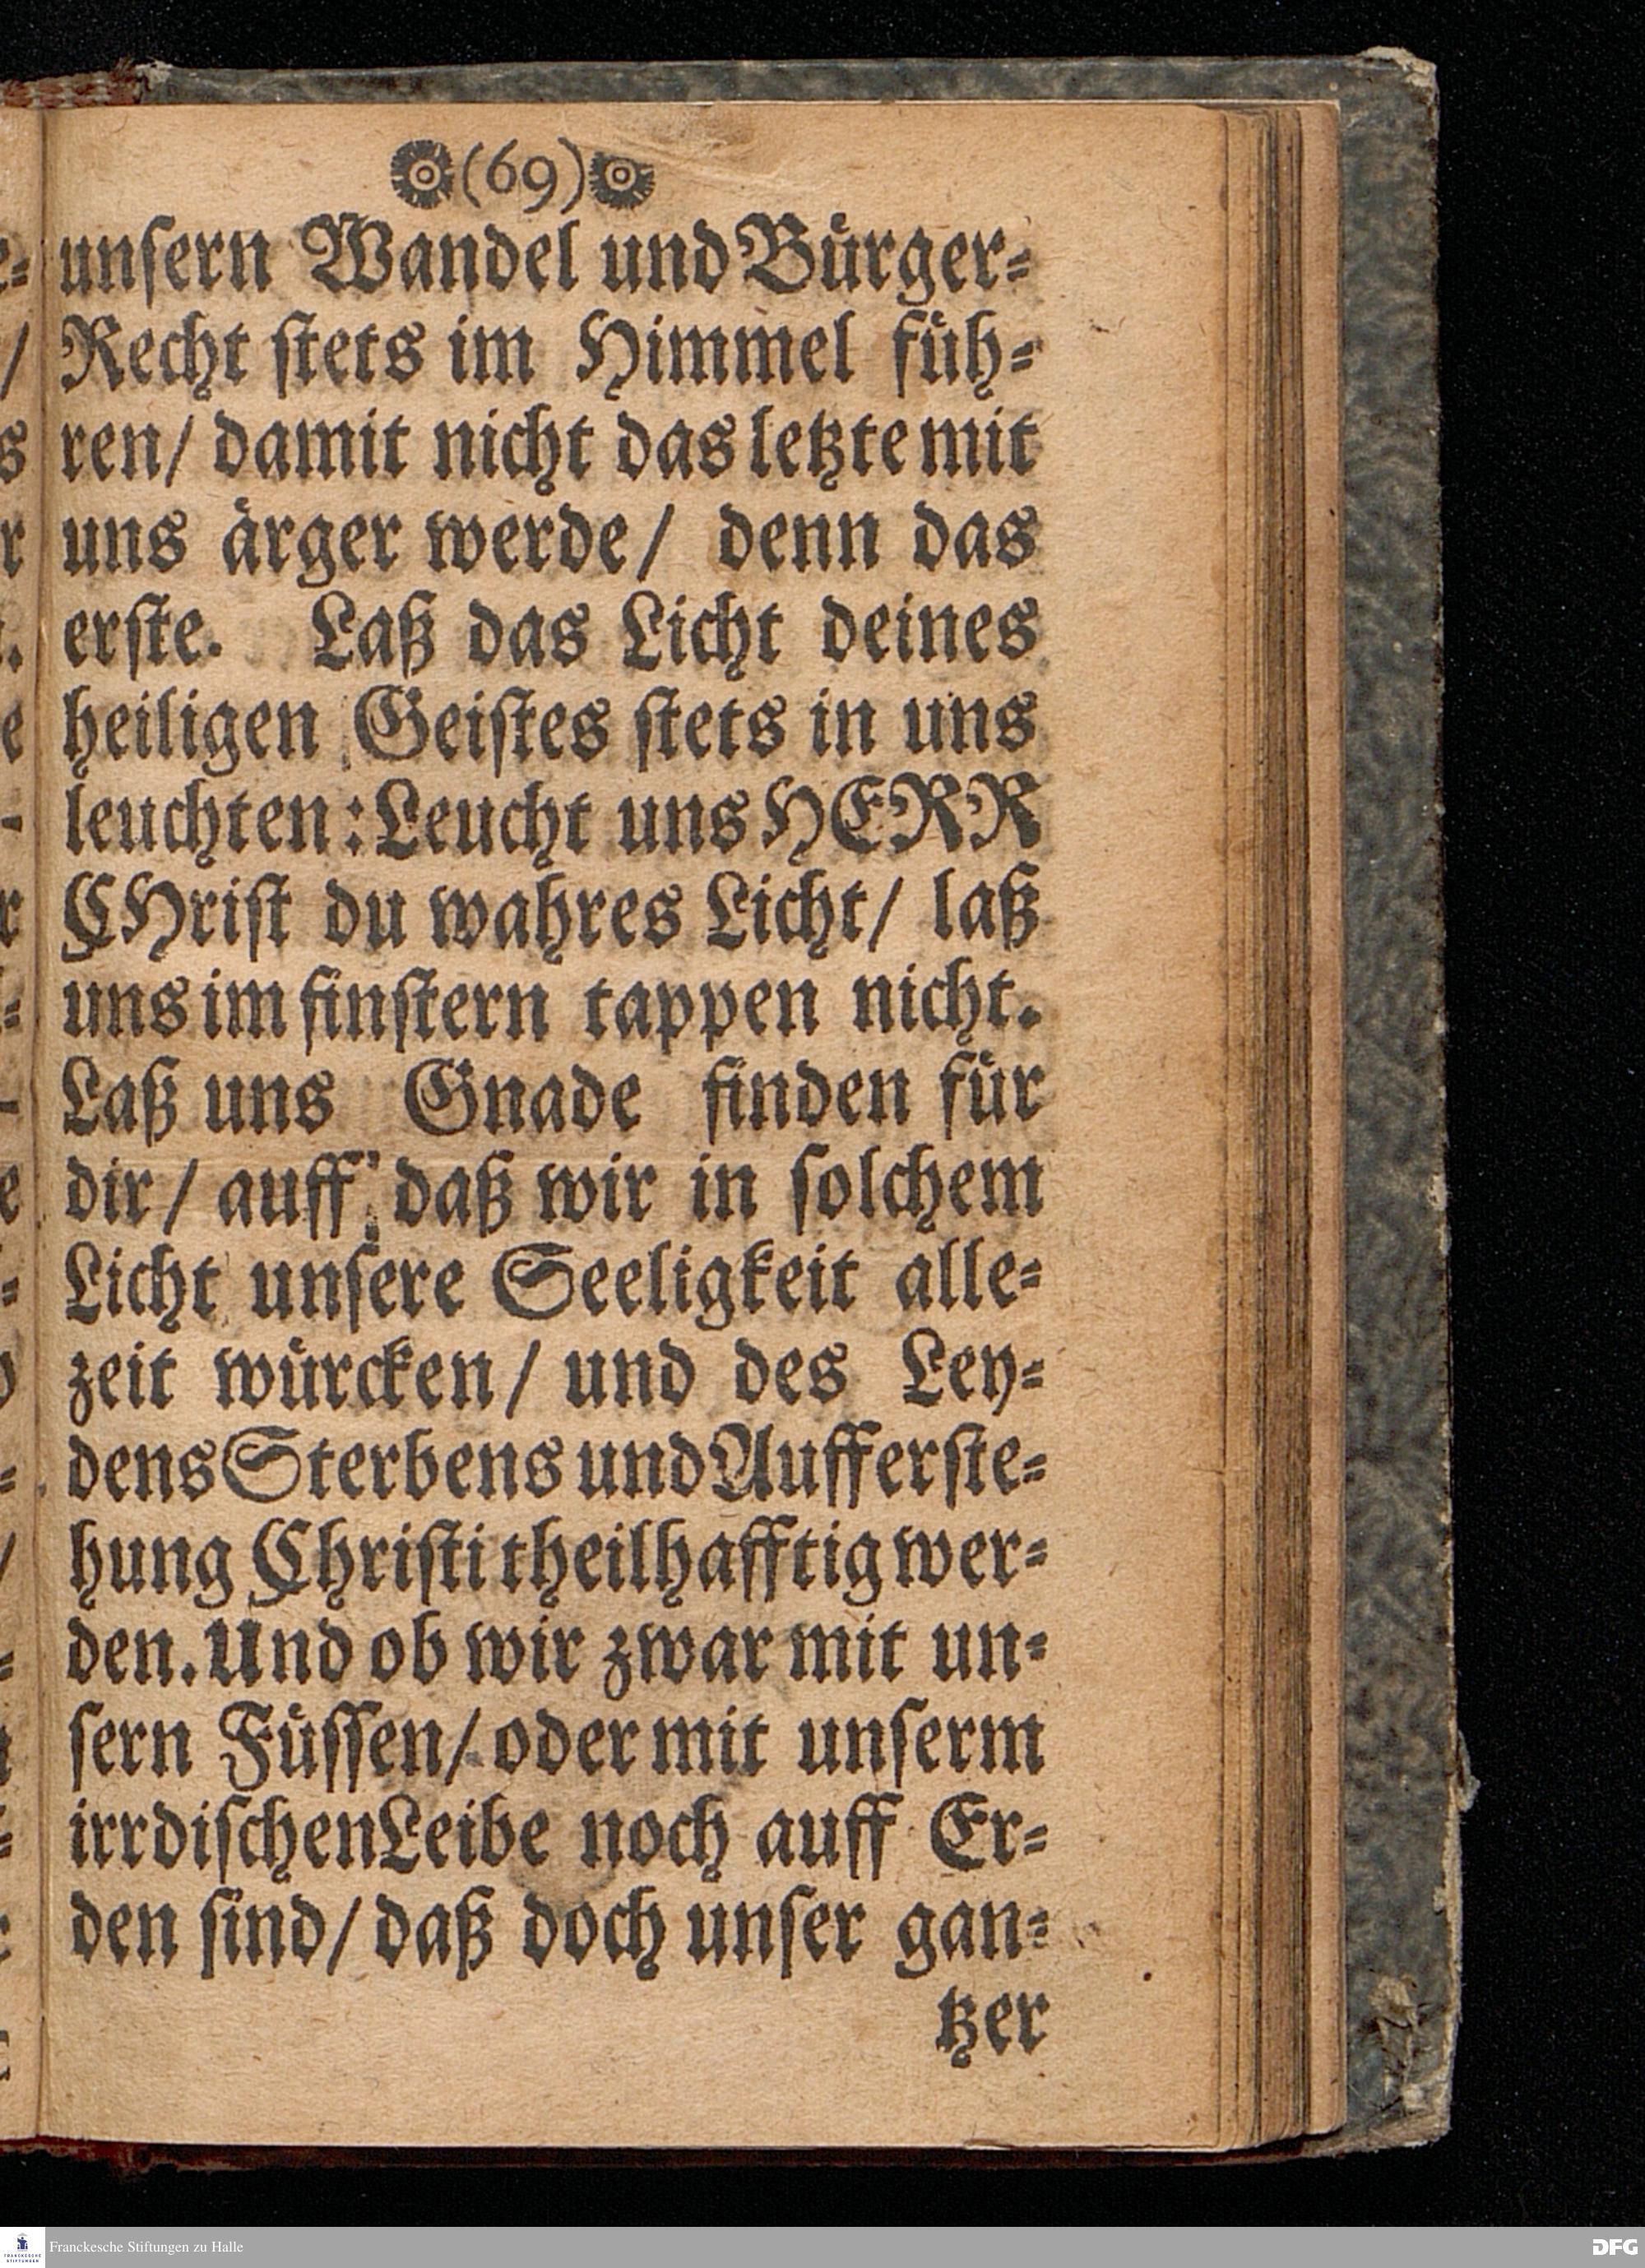 (69)
unſern Wandel und Bürger⸗
Recht ſtets im Himmel füh⸗
ren/ damit nicht das letzte mit
uns ärger werde/ denn das
erſte. Laß das Licht deines
heiligen Geiſtes ſtets in uns
leuchten: Leucht uns HERR
CHriſt du wahres Licht/ laß
uns im finſtern tappen nicht.
Laß uns Gnade finden für
dir/ auff daß wir in ſolchem
Licht unſere Seeligkeit alle⸗
zeit würcken/ und des Ley⸗
dens Sterbens und Aufferſte⸗
hung Chriſti theilhafftig wer⸗
den. Und ob wir zwar mit un⸗
ſern Füſſen/ oder mit unſerm
irrdiſchen Leibe noch auff Er⸗
den ſind/ daß doch unſer gan⸗
tzer
Franckesche Stiftungen zu Halle
DFG